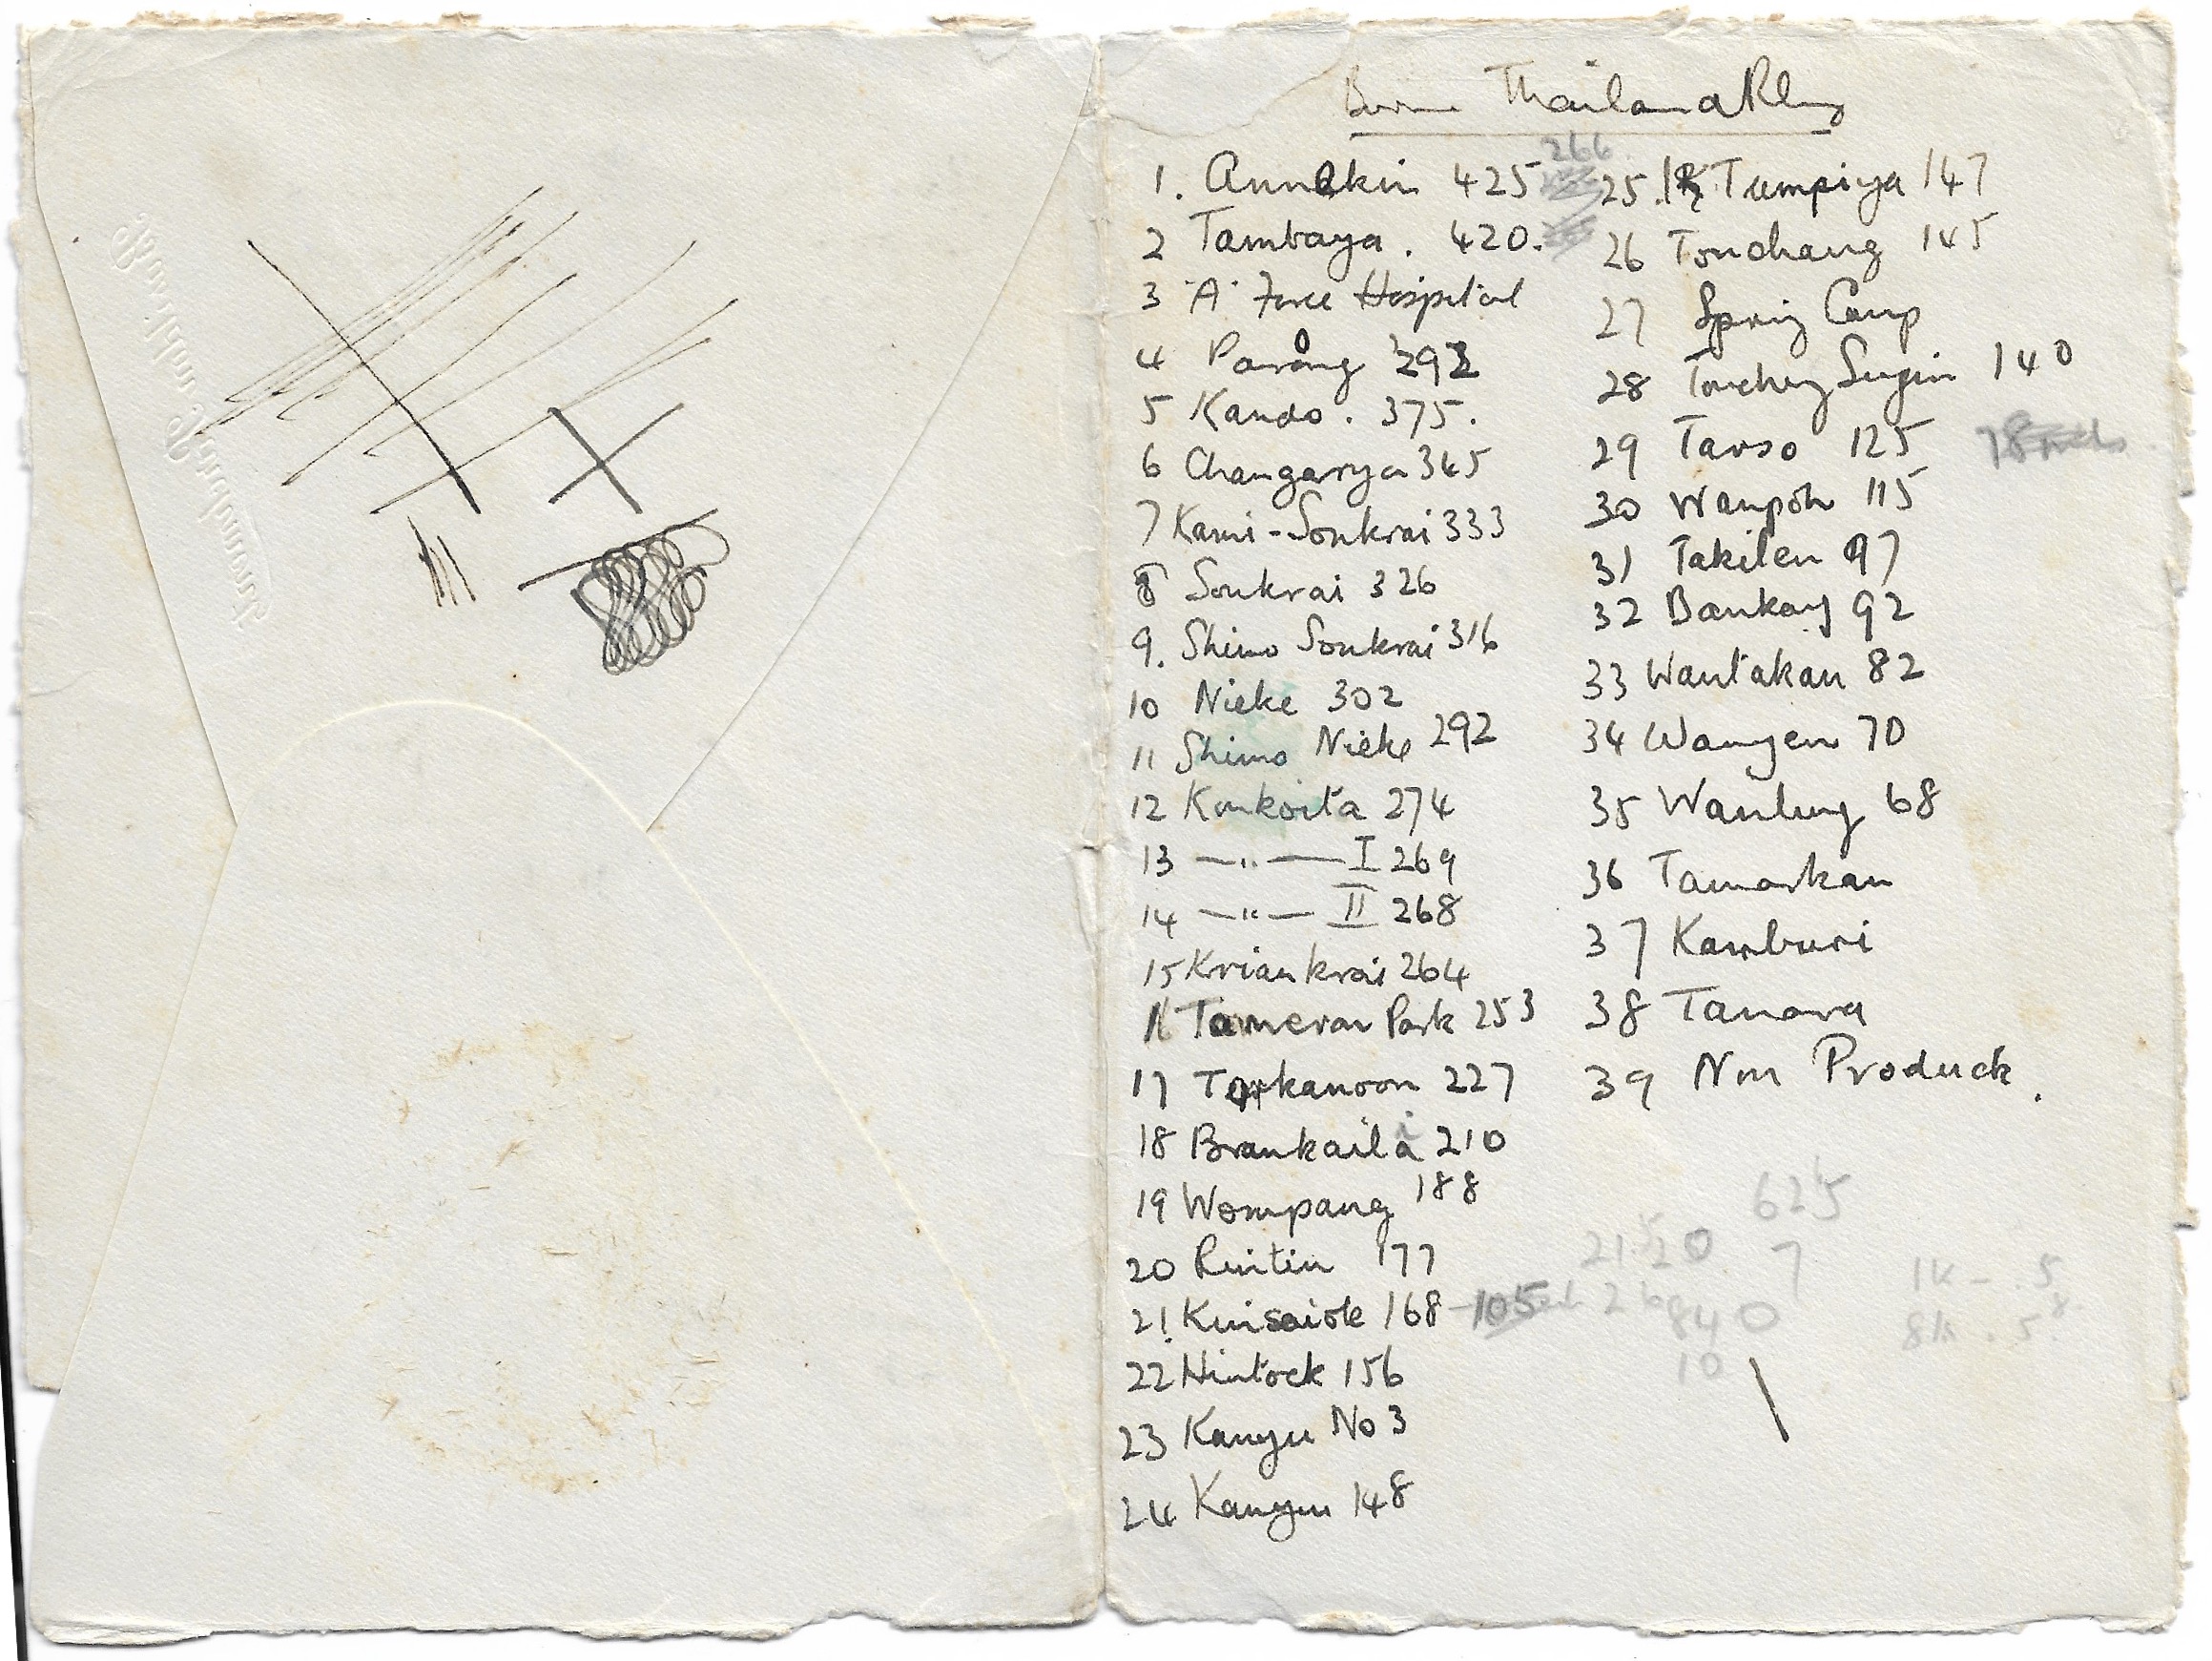 Burma Thailand Rly
1. Annakin 425
2 Tambaya. 420.
3 "A" Force Hospital
4 Parong 292
5 Kando. 375.
6 Changarrya 345
7 Kami-Sonkrai 333
8 Sonkrai 326
9. Shimo Sonkrai 316
10 Nieke 302
11 Shimo Nieke 292
12 Konkoita 274
13 —"— I 269
14 —"— II 268
15 Kriankrai 264
16 Tameran Park 253
17 Tarkanoon 227
18 Brankaila 210
19 Wompang 188
20 Rintin 177
21. Kinsaiok 168 - 105
22 Hintock 156
23 Kanyu No 3
24 Kanyu 148
266
25. Tumpiya 147
26 Tonchang 145
27 Spring Camp
28 140
29 Tarso 125 78 mls
30 Wanpoh 115
31 Takilen 97
32 Bankay 92
33 Wantakan 82
34 Wangen 70
35 Wanlung 68
36 Tamarkan
37 Kamburi
38 Tanara
39 Non Produck.
625
7
840
10
1k - .5
8k . 5.